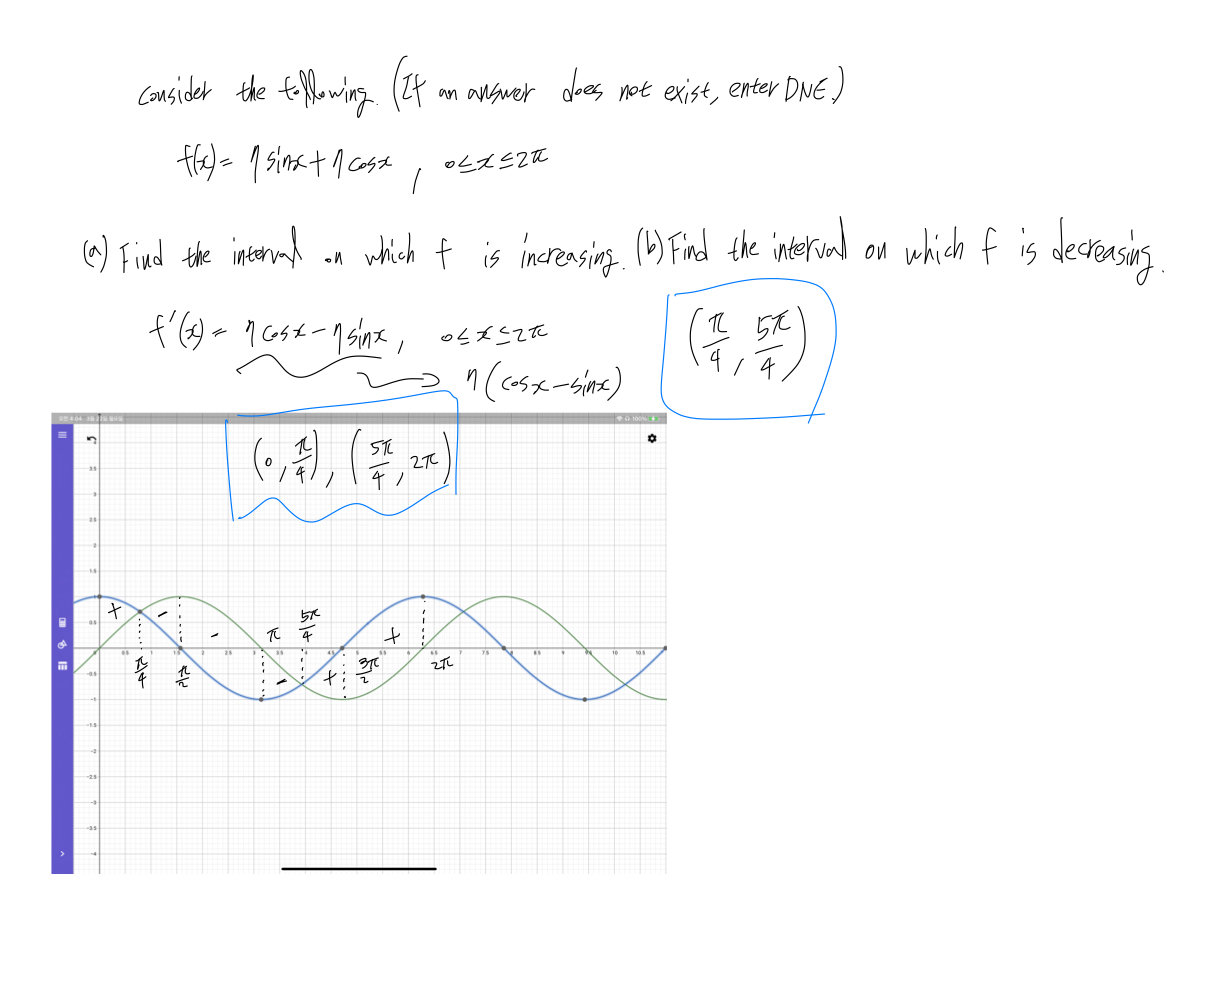 Consider the following. (If an answer does not exist, enter DNE.)
f(x) = 7 sinx + 7 cosx , 0≤x≤2π
(a) Find the interval on which f is increasing. (b) Find the interval on which f is decreasing.
f'(x) = 7 cosx − 7 sinx , 0≤x≤2π
7 (cosx − sinx)
(π/4, 5π/4)
(0, π/4), (5π/4, 2π)
100%
3.5
3
2.5
2
1.5
+ − − π 5π/4 +
0.5
0 0.5 1 1.5 2 2.5 3 3.5 4 4.5 5 5.5 6 6.5 7 7.5 8 8.5 9 9.5 10 10.5
π/4 π/2 − + 3π/2 2π
−0.5
−1
−1.5
−2
−2.5
−3
−3.5
−4